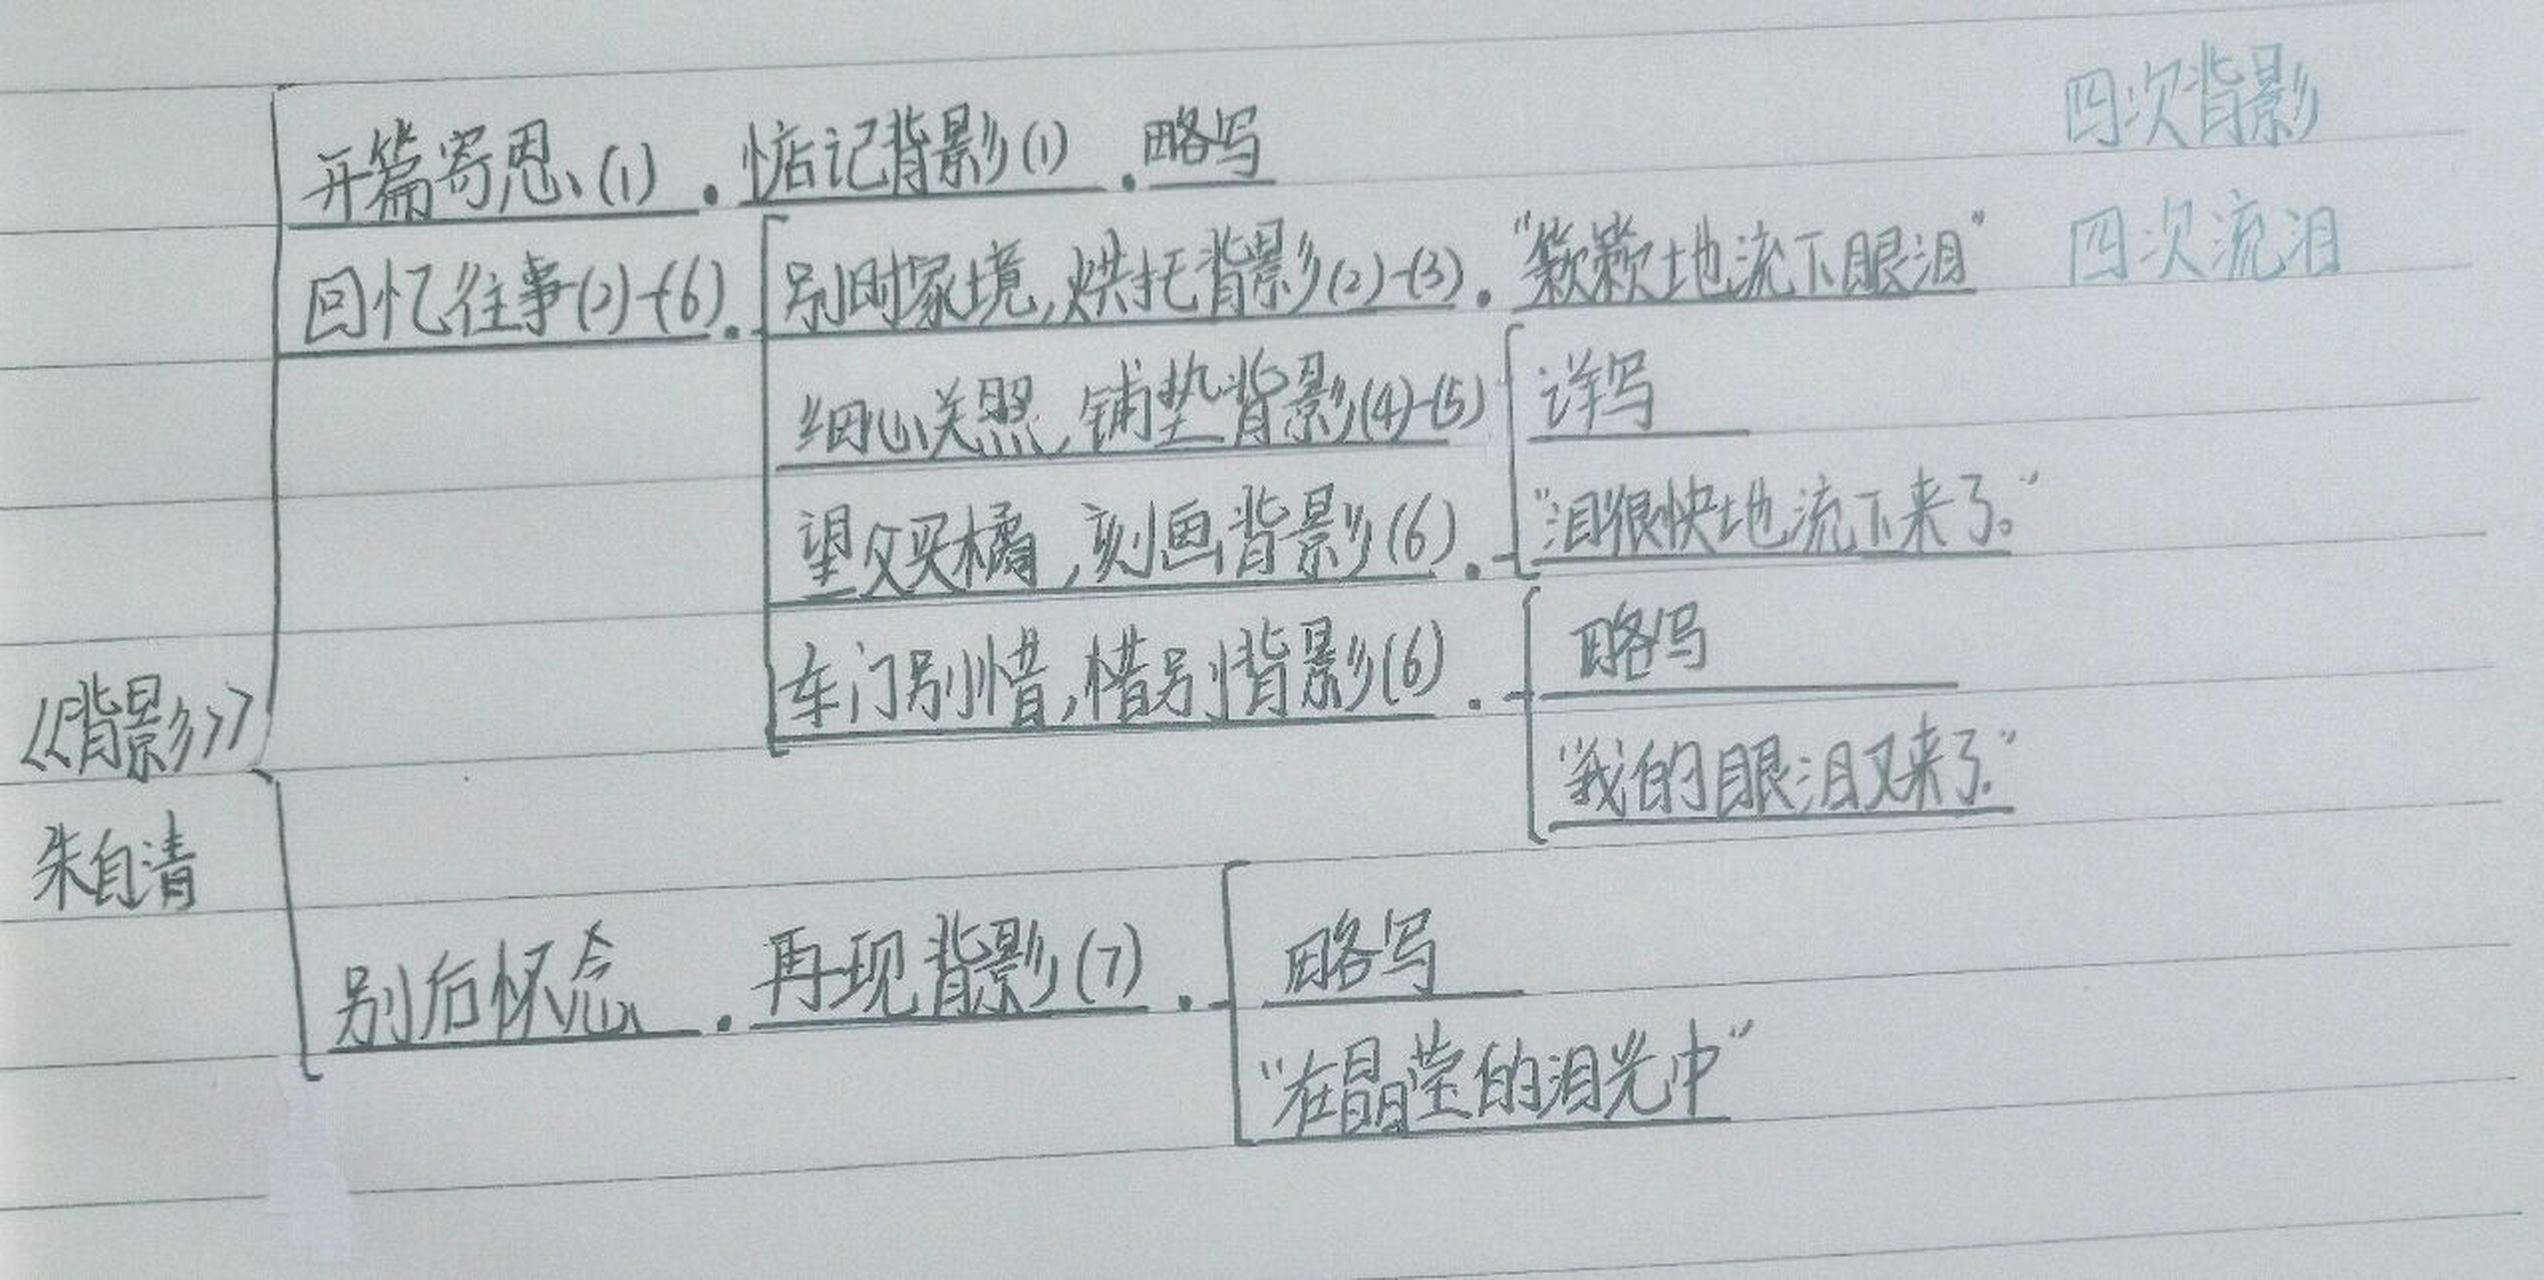 开篇寄思(1).惦记背影(1).略写 四次背影
回忆往事(2)-(6).别时家境,烘托背影(2)-(3)."簌簌地流下眼泪" 四次流泪
细心关照,铺垫背影(4)-(5) 详写
望父买橘,刻画背影(6). "泪很快地流下来了。"
车门别惜,惜别背影(6). 略写
《背影》
"我的眼泪又来了."
朱自清
别后怀念.再现背影(7). 略写
"在晶莹的泪光中"